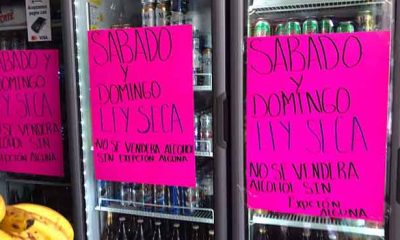 SABADO
Y
DOMINGO
LEY SECA
NO SE VENDERA
SIN EXPCIÓN ALGUNA
SABADO
Y
DOMINGO
LEY SECA
NO SE VENDERA ALCOHOL
SIN EXPCIÓN ALGUNA
SABADO
Y
DOMINGO
LEY SECA
NO SE VENDERA
ALCOHOL SIN
EXPCIÓN ALGUNA